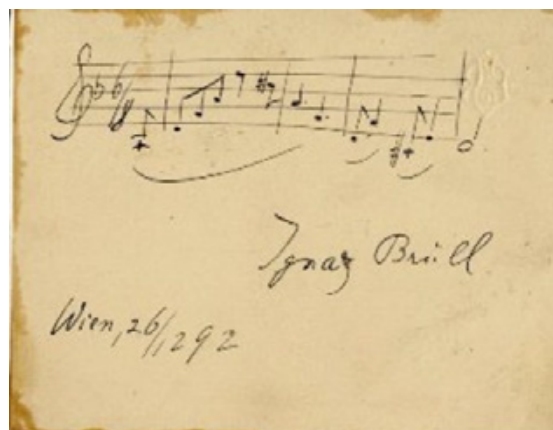 Ignaz Brüll
Wien, 26/1292